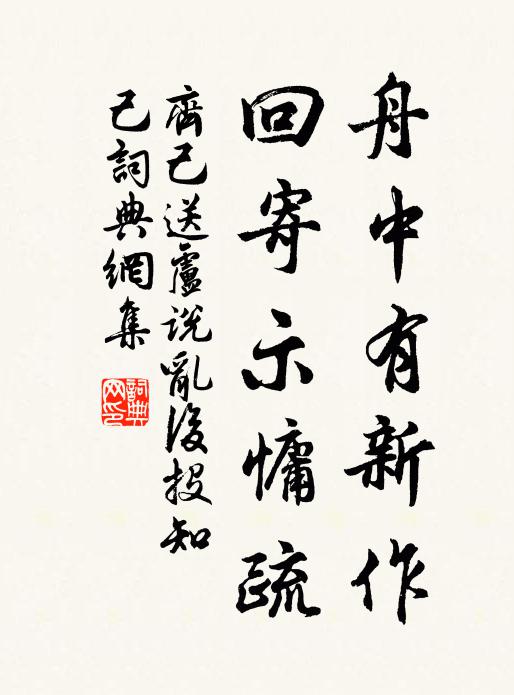 舟中有新作
回寄示慵疏
齊己送盧説亂後投知
己詞典網集
詞典网印